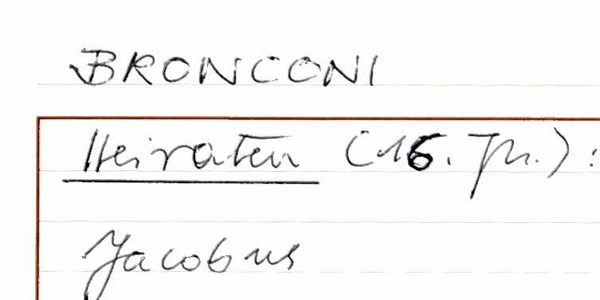 BRONCONI
Heiraten (16. Jh.):
Jacobus